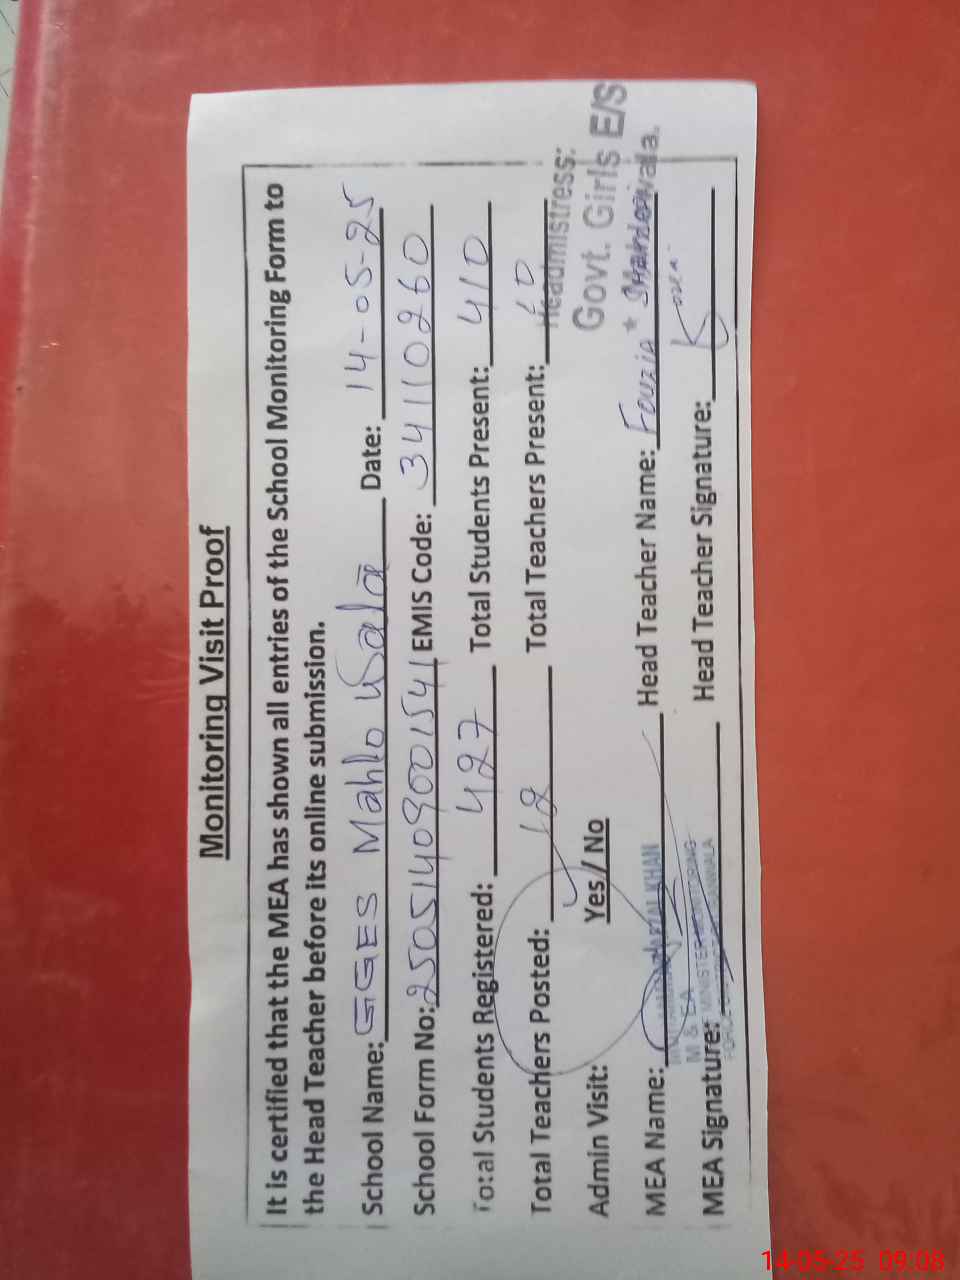 Monitoring Visit Proof
It is certified that the MEA has shown all entries of the School Monitoring Form to
the Head Teacher before its online submission.
School Name: GGES Mahlo Wala Date: 14-05-25
School Form No: 25051409001541 EMIS Code: 34110260
Total Students Registered: 427 Total Students Present: 410
Total Teachers Posted: 12 Total Teachers Present: 10
Headmistress:
Admin Visit: Yes / No
Govt. Girls E/S
MEA Name: KHAN Head Teacher Name: Fouzia *
M & EA
MINISTER MONITORING
MEA Signature: Head Teacher Signature:
FORCE
14-05-25 09:08